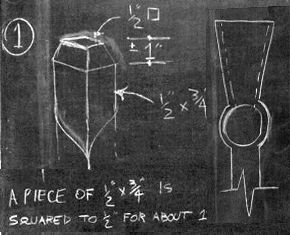 1
1/2" □
± 1"
1/2" x 3/4"
A PIECE OF 1/2" x 3/4" IS
SQUARED TO 1/2" FOR ABOUT 1